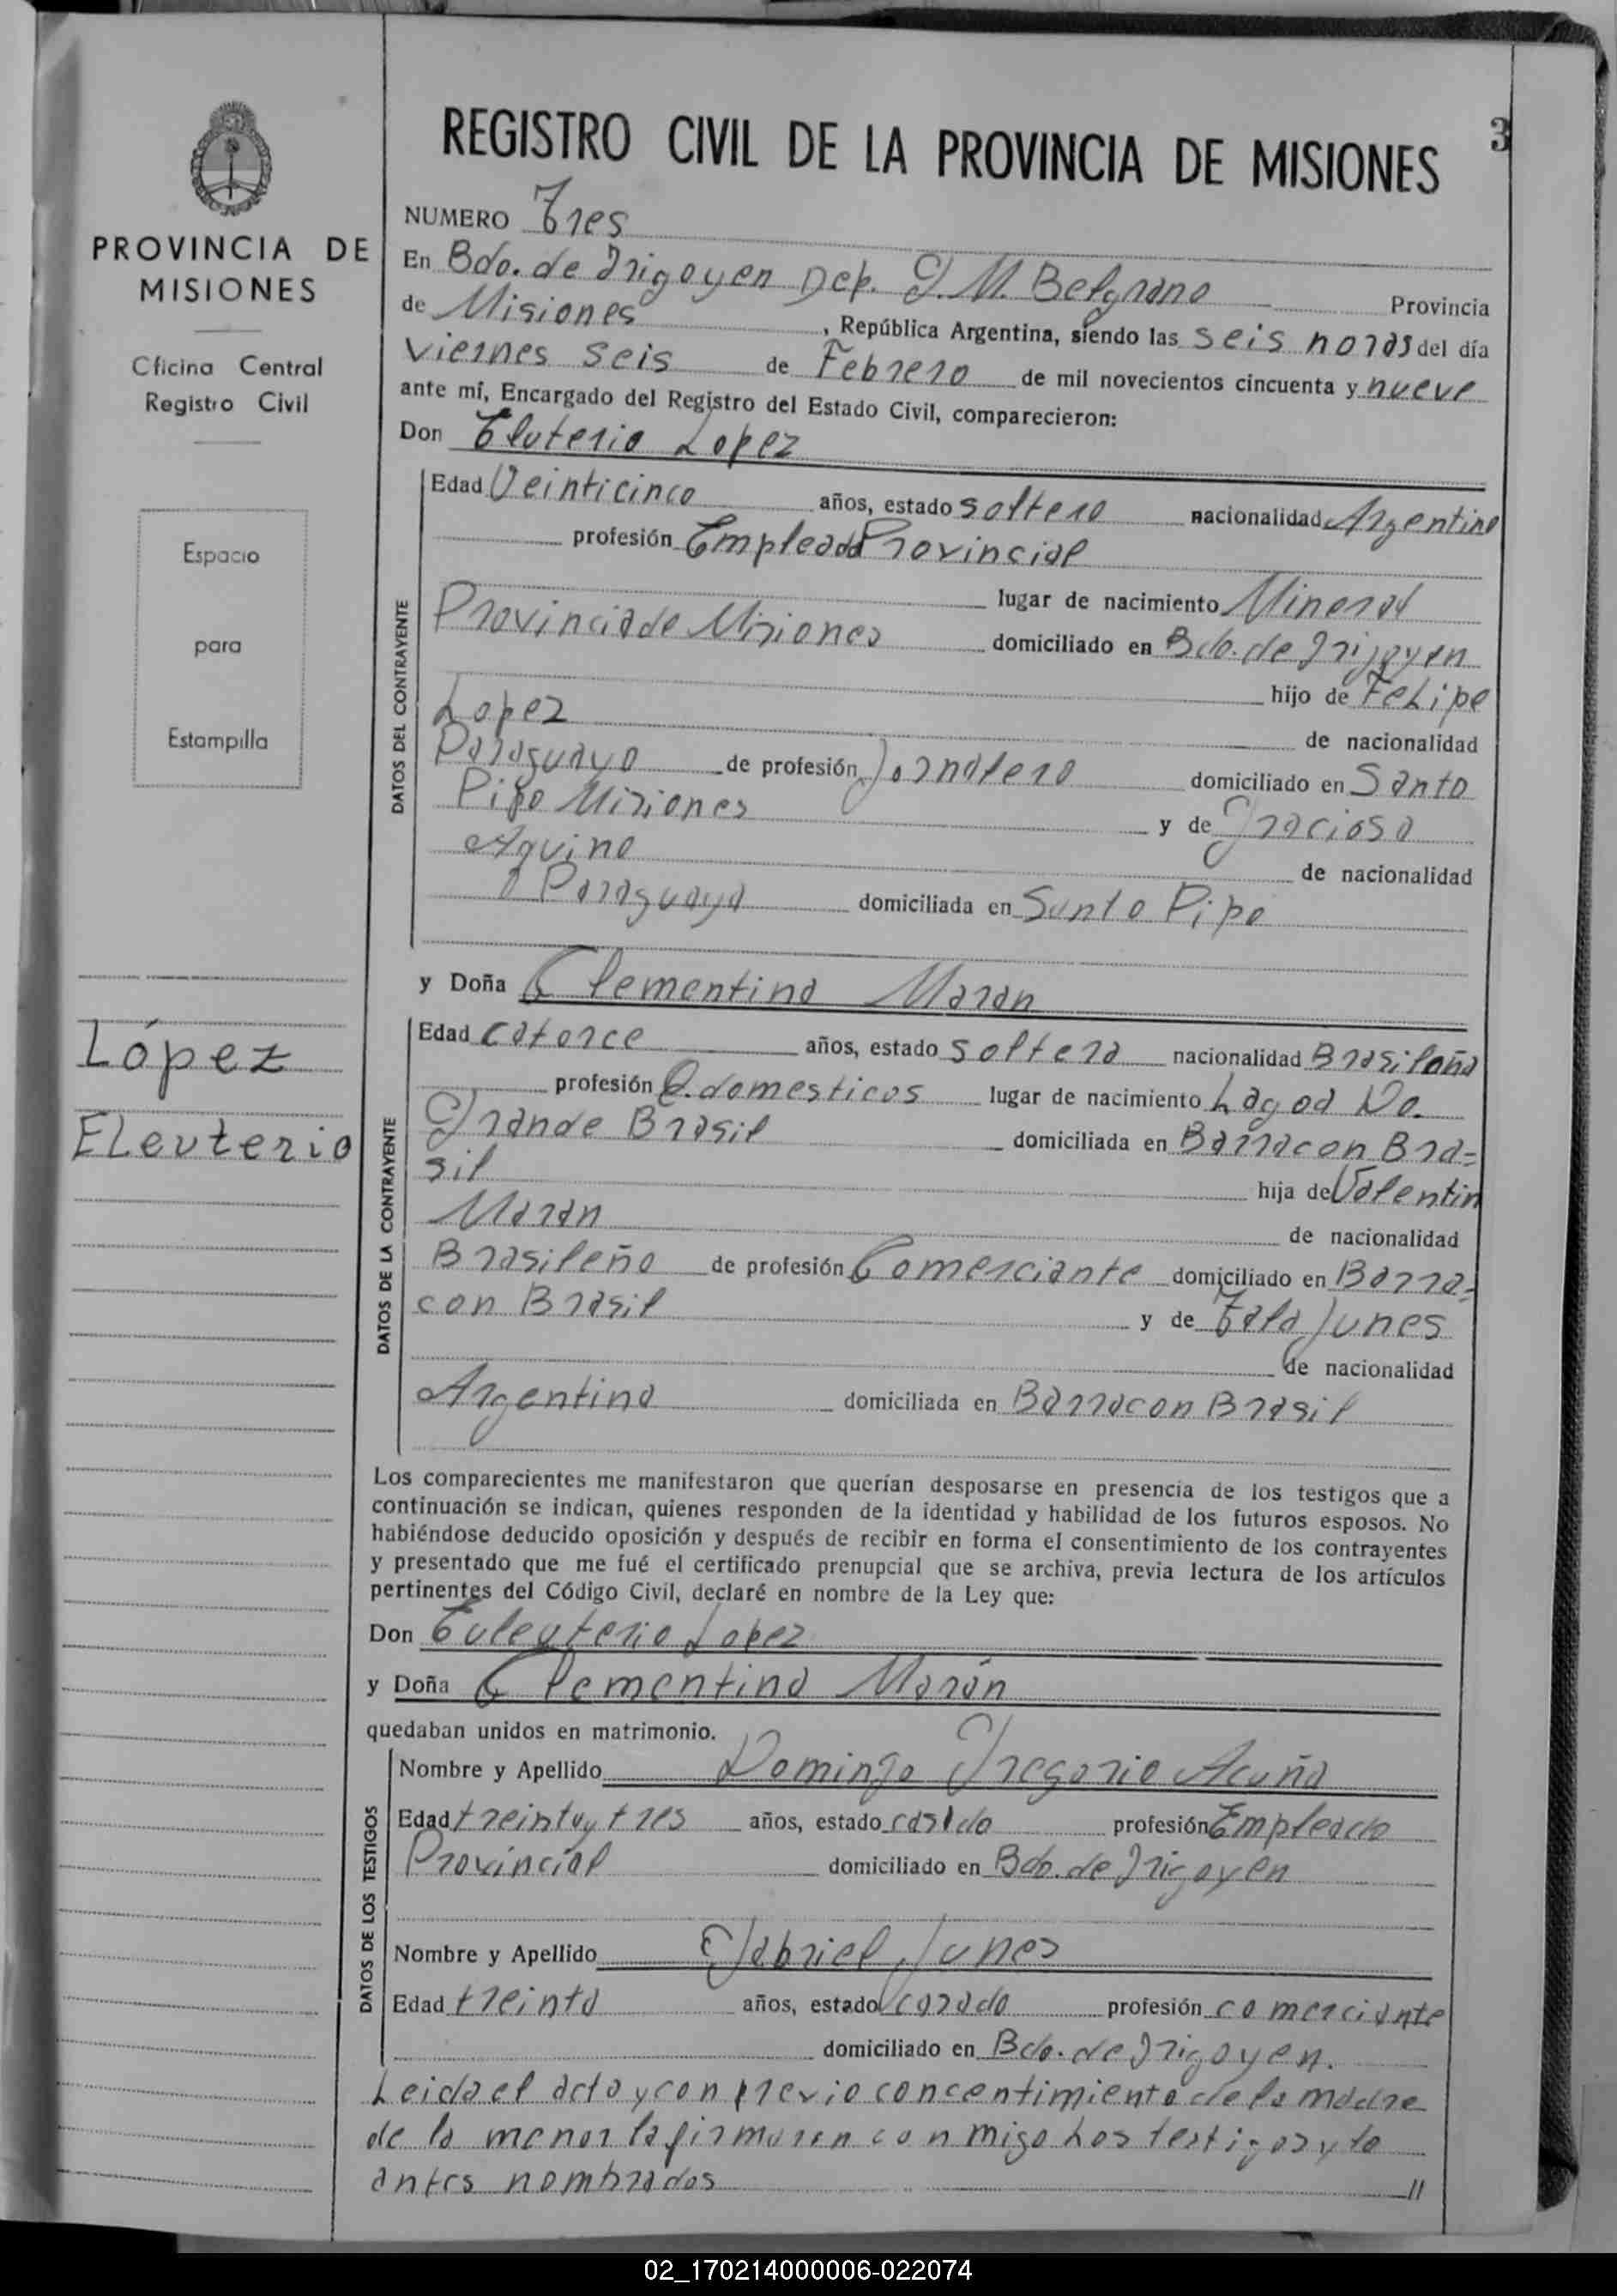 REGISTRO CIVIL DE LA PROVINCIA DE MISIONES 3
PROVINCIA DE
MISIONES
Oficina Central
Registro Civil
Espacio
para
Estampilla
López
ELeuterio
NUMERO Tres
En Bdo. de Irigoyen Dep. G. M. Belgrano Provincia
de Misiones, República Argentina, siendo las seis horas del día
viernes seis de Febrero de mil novecientos cincuenta y nueve
ante mí, Encargado del Registro del Estado Civil, comparecieron:
Don Eluterio Lopez
DATOS DEL CONTRAYENTE
Edad Veinticinco años, estado soltero nacionalidad Argentino
profesión Empleado Provincial
lugar de nacimiento Mineral
Provincia de Misiones domiciliado en Bdo. de Irigoyen
hijo de FeLipe
Lopez de nacionalidad
Paraguayo de profesión Jornalero domiciliado en Santo
Pipo Misiones y de Graciosa
Aquino de nacionalidad
Paraguaya domiciliada en Santo Pipo
y Doña Clementina Maran
DATOS DE LA CONTRAYENTE
Edad catorce años, estado soltera nacionalidad Brasileña
profesión Q. domesticos lugar de nacimiento Lagoa Do.
Grande Brasil domiciliada en Barracon Bra=
sil hija de Valentin
Maran de nacionalidad
Brasileño de profesión Comerciante domiciliado en Barra=
con Brasil y de Tala Junes
de nacionalidad
Argentina domiciliada en Barracon Brasil
Los comparecientes me manifestaron que querían desposarse en presencia de los testigos que a
continuación se indican, quienes responden de la identidad y habilidad de los futuros esposos. No
habiéndose deducido oposición y después de recibir en forma el consentimiento de los contrayentes
y presentado que me fué el certificado prenupcial que se archiva, previa lectura de los artículos
pertinentes del Código Civil, declaré en nombre de la Ley que:
Don Euleuterio Lopez
y Doña Clementina Marán
quedaban unidos en matrimonio.
DATOS DE LOS TESTIGOS
Nombre y Apellido Domingo Gregorio Acuña
Edad treinta y tres años, estado casado profesión Empleado
Provincial domiciliado en Bdo. de Irigoyen
Nombre y Apellido Gabriel Junes
Edad treinta años, estado casado profesión comerciante
domiciliado en Bdo. de Irigoyen.
Leida el acta y con previo concentimiento de la madre
de la menor la firmaren conmigo Los testigos y lo
antes nombrados //
02_170214000006-022074